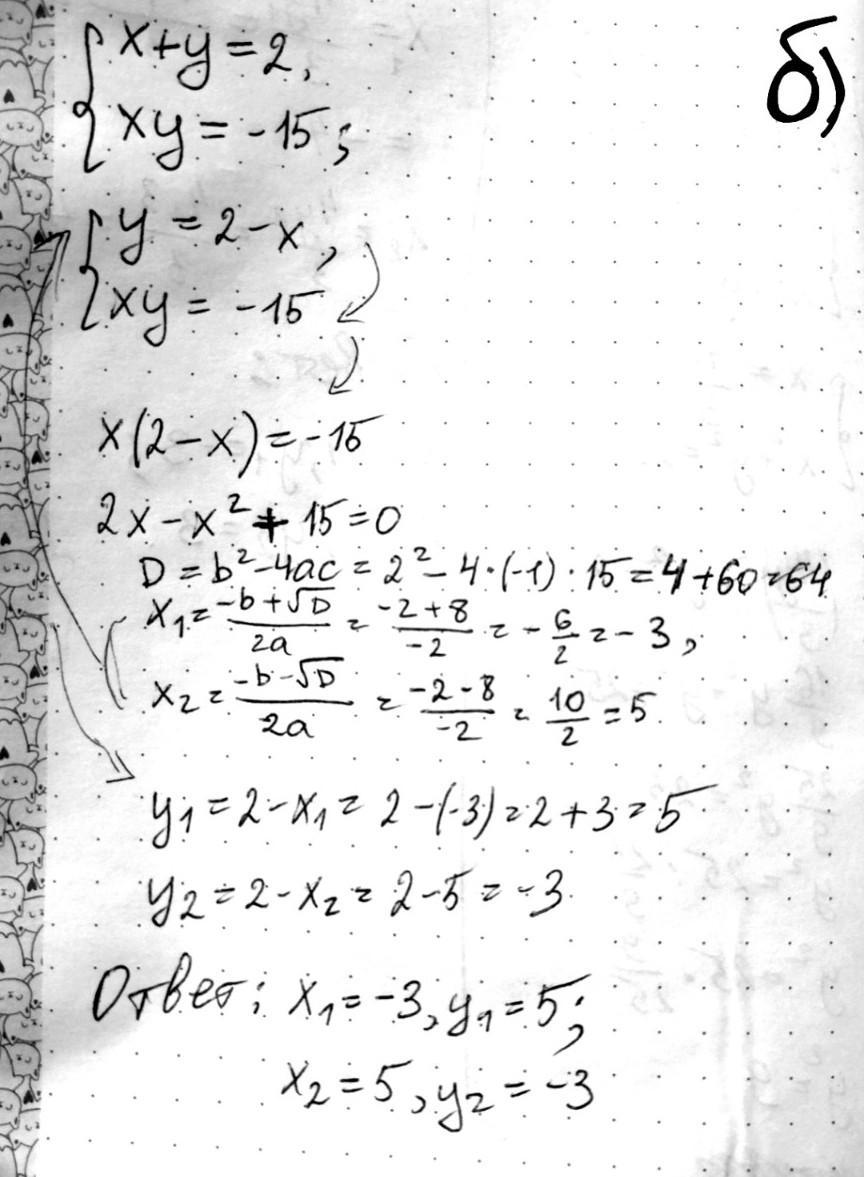 б)
{ x+y=2,
xy=-15;
{ y=2-x,
xy=-15
x(2-x)=-15
2x-x²+15=0
D=b²-4ac=2²-4·(-1)·15=4+60=64
x₁=(-b+√D)/2a=(-2+8)/-2=-6/2=-3,
x₂=(-b-√D)/2a=(-2-8)/-2=10/2=5
y₁=2-x₁=2-(-3)=2+3=5
y₂=2-x₂=2-5=-3
Ответ: x₁=-3, y₁=5;
x₂=5, y₂=-3